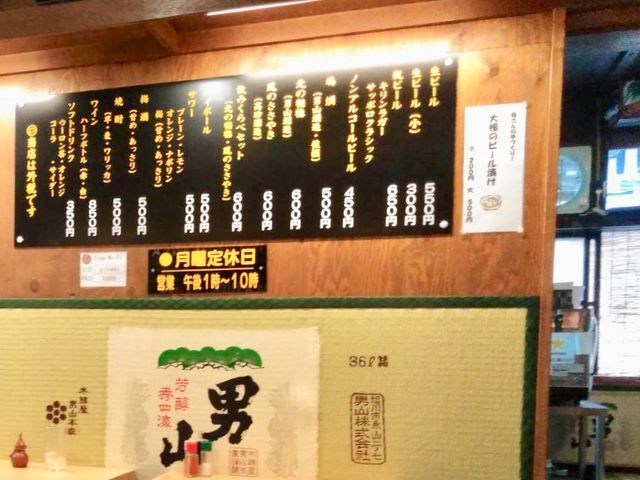 生ビール 550円
生ビール（小） 300円
瓶ビール
キリンラガー
サッポロクラシック 650円
ノンアルコールビール 450円
燗酒
（男山酒造・佳撰） 500円
北の稲穂
（男山酒造） 600円
風のささやき
600円
飲みくらべセット
（北の稲穂・風のささやき） 600円
ハイボール 500円
サワー
プレーン・レモン
オレンジ・ナポリン
梅（甘め・あっさり） 500円
梅酒
（甘め・あっさり） 500円
焼酎
500円
ワイン
ハーフボトル（赤・白） 850円
ソフトドリンク 350円
ウーロン茶・オレンジ
コーラ・サイダー
◎当店は外税です
母さんの手づくり!
大根のビール漬け
小 200円 大 500円
●月曜定休日
営業 午後1時〜10時
芳醇
男山
36ℓ詰
木綿屋
男山本家
旭川市永山二ノ七
男山株式会社